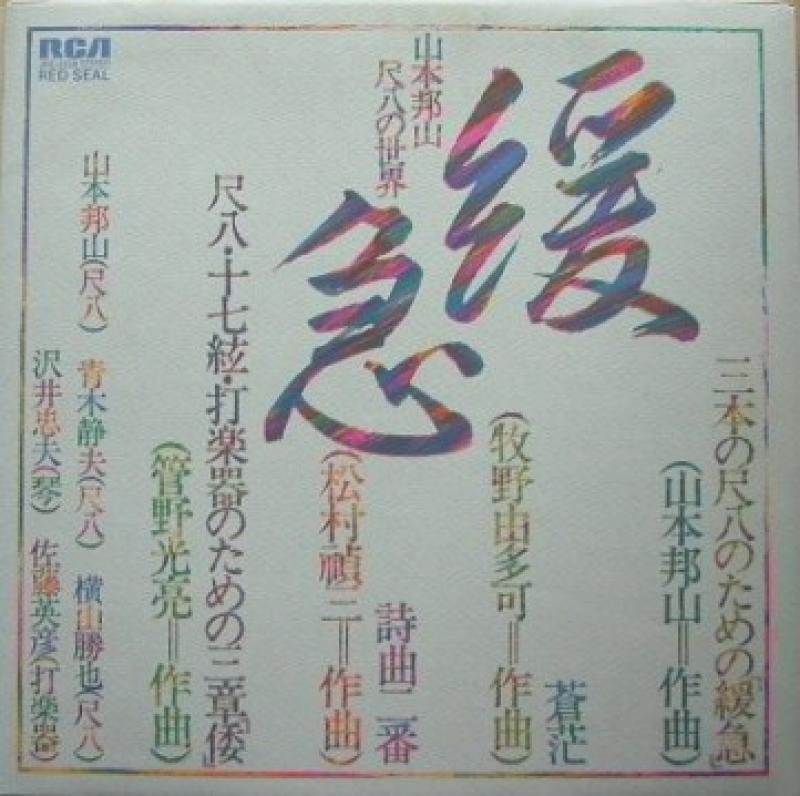 RCA
RED SEAL
山本邦山
尺八の世界
緩急
三本の尺八のための「緩急」
（山本邦山＝作曲）
蒼茫
（牧野由多可＝作曲）
詩曲二番
（松村禎三＝作曲）
尺八・十七絃・打楽器のための三章「倭」
（管野光亮＝作曲）
山本邦山（尺八） 青木静夫（尺八） 横山勝也（尺八）
沢井忠夫（琴） 佐藤英彦（打楽器）